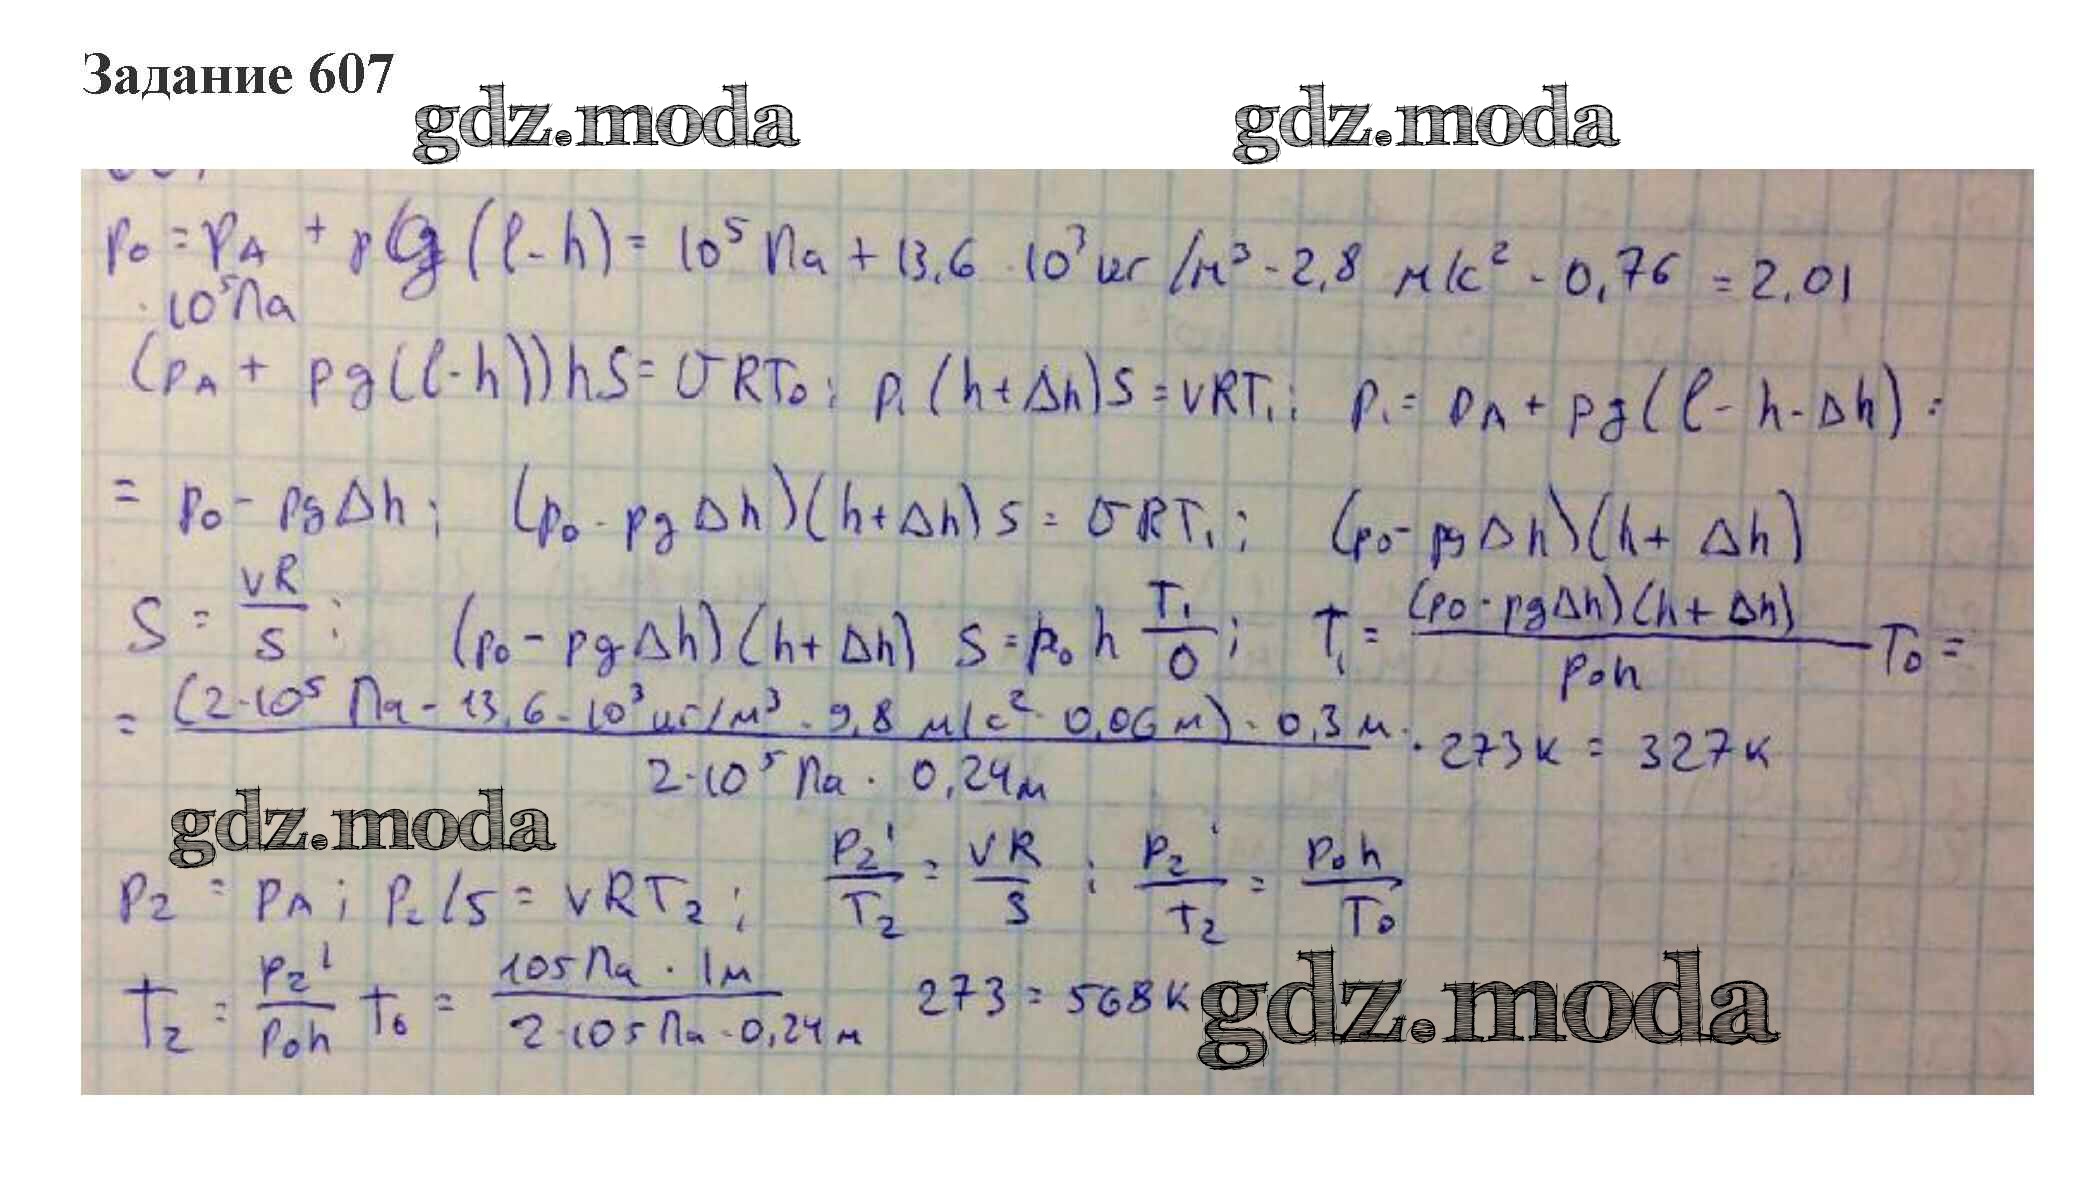 Задание 607
gdz.moda gdz.moda
p₀ = p_A + ρg(l-h) = 10⁵ Па + 13,6 · 10³ кг/м³ - 2,8 м/с² - 0,76 = 2,01
· 10⁵ Па
(p_A + ρg(l-h))hS = υRT₀; p₁(h+Δh)S = νRT₁; p₁ = p_A + ρg(l-h-Δh) =
= p₀ - ρgΔh; (p₀ - ρgΔh)(h+Δh)S = υRT₁; (p₀ - ρgΔh)(h+Δh)
S = νR/S; (p₀ - ρgΔh)(h+Δh) S = p₀h T₁/0; T₁ = (p₀-ρgΔh)(h+Δh)/p₀h T₀ =
= (2·10⁵ Па - 13,6 - 10³ кг/м³ · 9,8 м/с² · 0,06 м) · 0,3 м / 2·10⁵ Па · 0,24 м · 273К = 327К
gdz.moda
p₂ = p_A; p₂lS = νRT₂; p₂l/T₂ = νR/S; p₂l/T₂ = p₀h/T₀
T₂ = p₂l/p₀h T₀ = 105 Па · 1м / 2·105 Па · 0,24 м 273 = 568К
gdz.moda